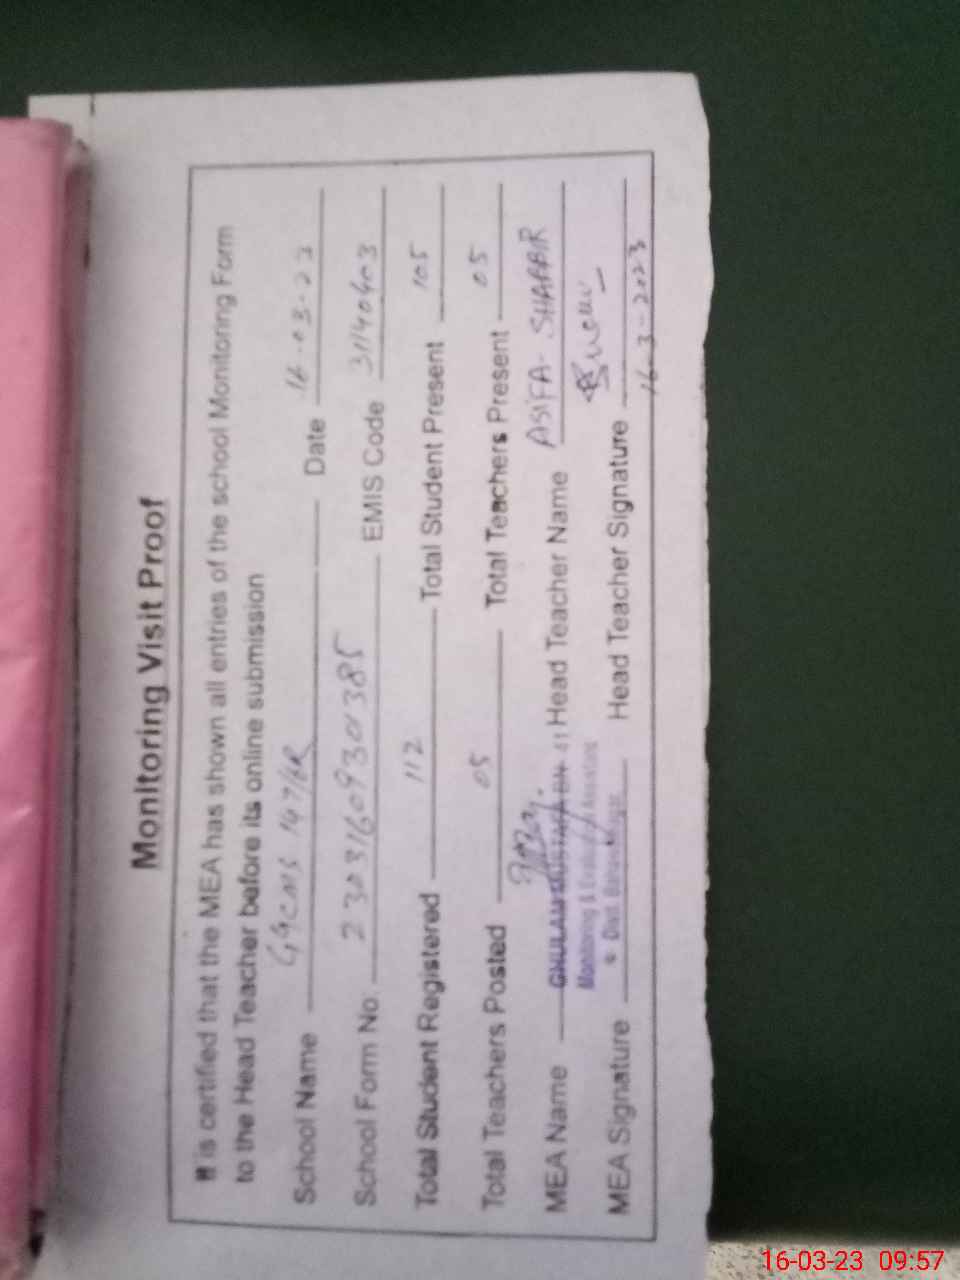 Monitoring Visit Proof
It is certified that the MEA has shown all entries of the school Monitoring Form
to the Head Teacher before its online submission
School Name GGCMS 147/6R Date 16-03-23
School Form No: 2303160930385 EMIS Code 31140403
Total Student Registered 112 Total Student Present 105
Total Teachers Posted 05 Total Teachers Present 05
MEA Name GHULAM MUSTAFA Head Teacher Name ASIFA- SHABBIR
Monitoring & Evaluation Assistant
Distt. Bahawalnagar
MEA Signature Head Teacher Signature
16-3-2023
16-03-23 09:57